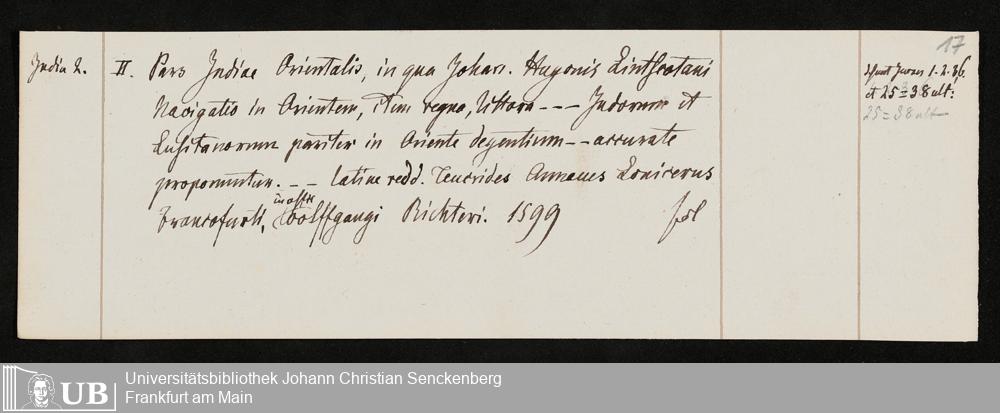 17
India 2.
II. Pars Indiae Orientalis, in qua Johan. Hugonis Lintscotani
Navigatio in Orientem, item regna, littora --- Indorum et
Lusitanorum pariter in Oriente degentium -- accurate
proponuntur. -- latine redd. Teucrides Annaeus Lonicerus
Francofurti, in offic Wolffgangi Richteri. 1599 fol
desunt Icones 1. 2. 36.
et 25=38 ult:
25=38 ult
UB
Universitätsbibliothek Johann Christian Senckenberg
Frankfurt am Main